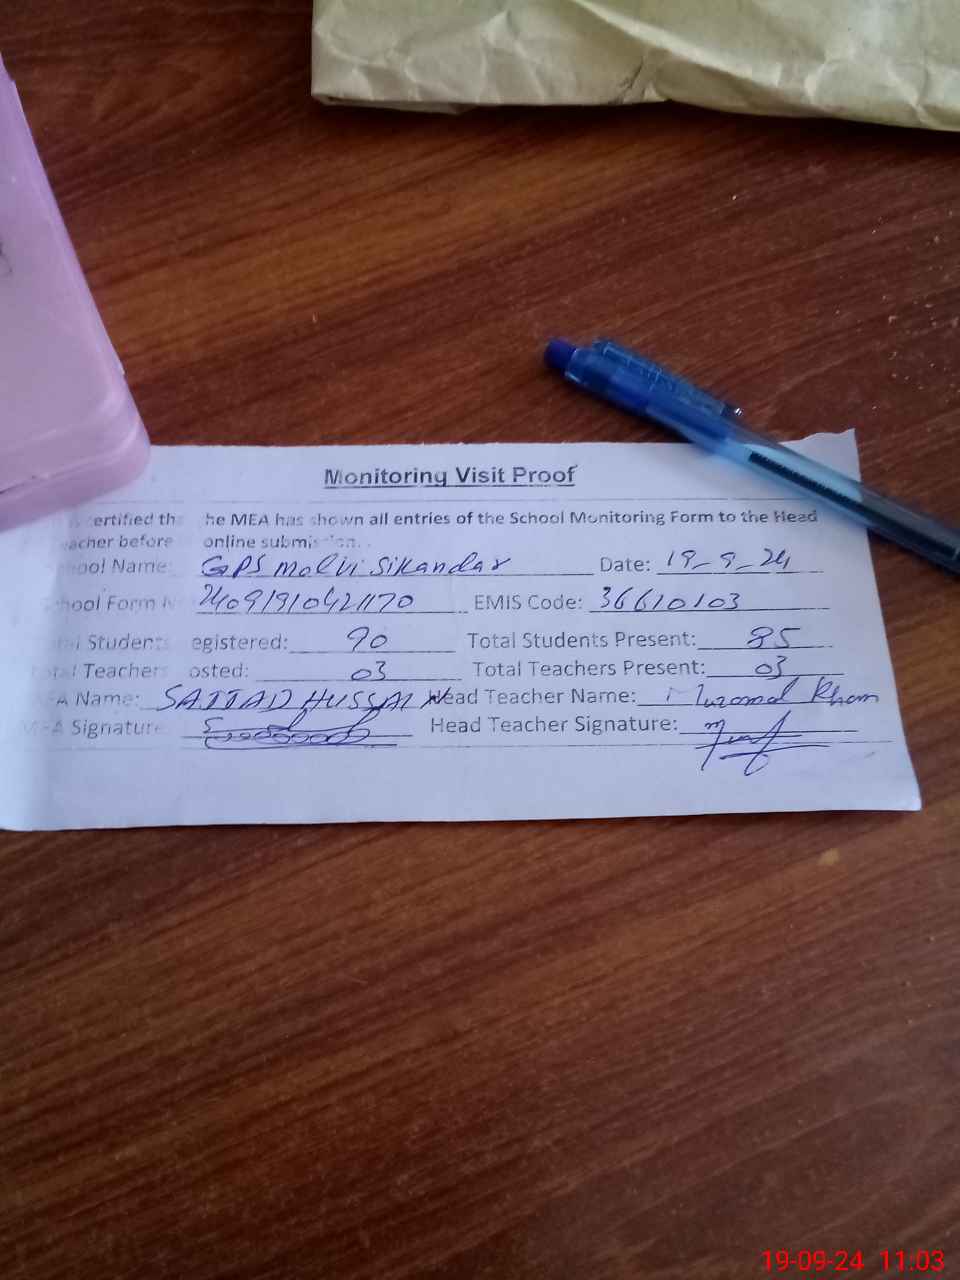 Monitoring Visit Proof
ertified th he MEA has shown all entries of the School Monitoring Form to the Head
acher before online submission.
hool Name: GPS Molvi Sikandar Date: 19-9-24
hool Form N 24091910421170 EMIS Code: 36610103
Students egistered: 90 Total Students Present: 85
Total Teachers osted: 03 Total Teachers Present: 03
EA Name: SAJJAD HUSSAIN Head Teacher Name: Khan
MEA Signature Head Teacher Signature:
19-09-24 11:03